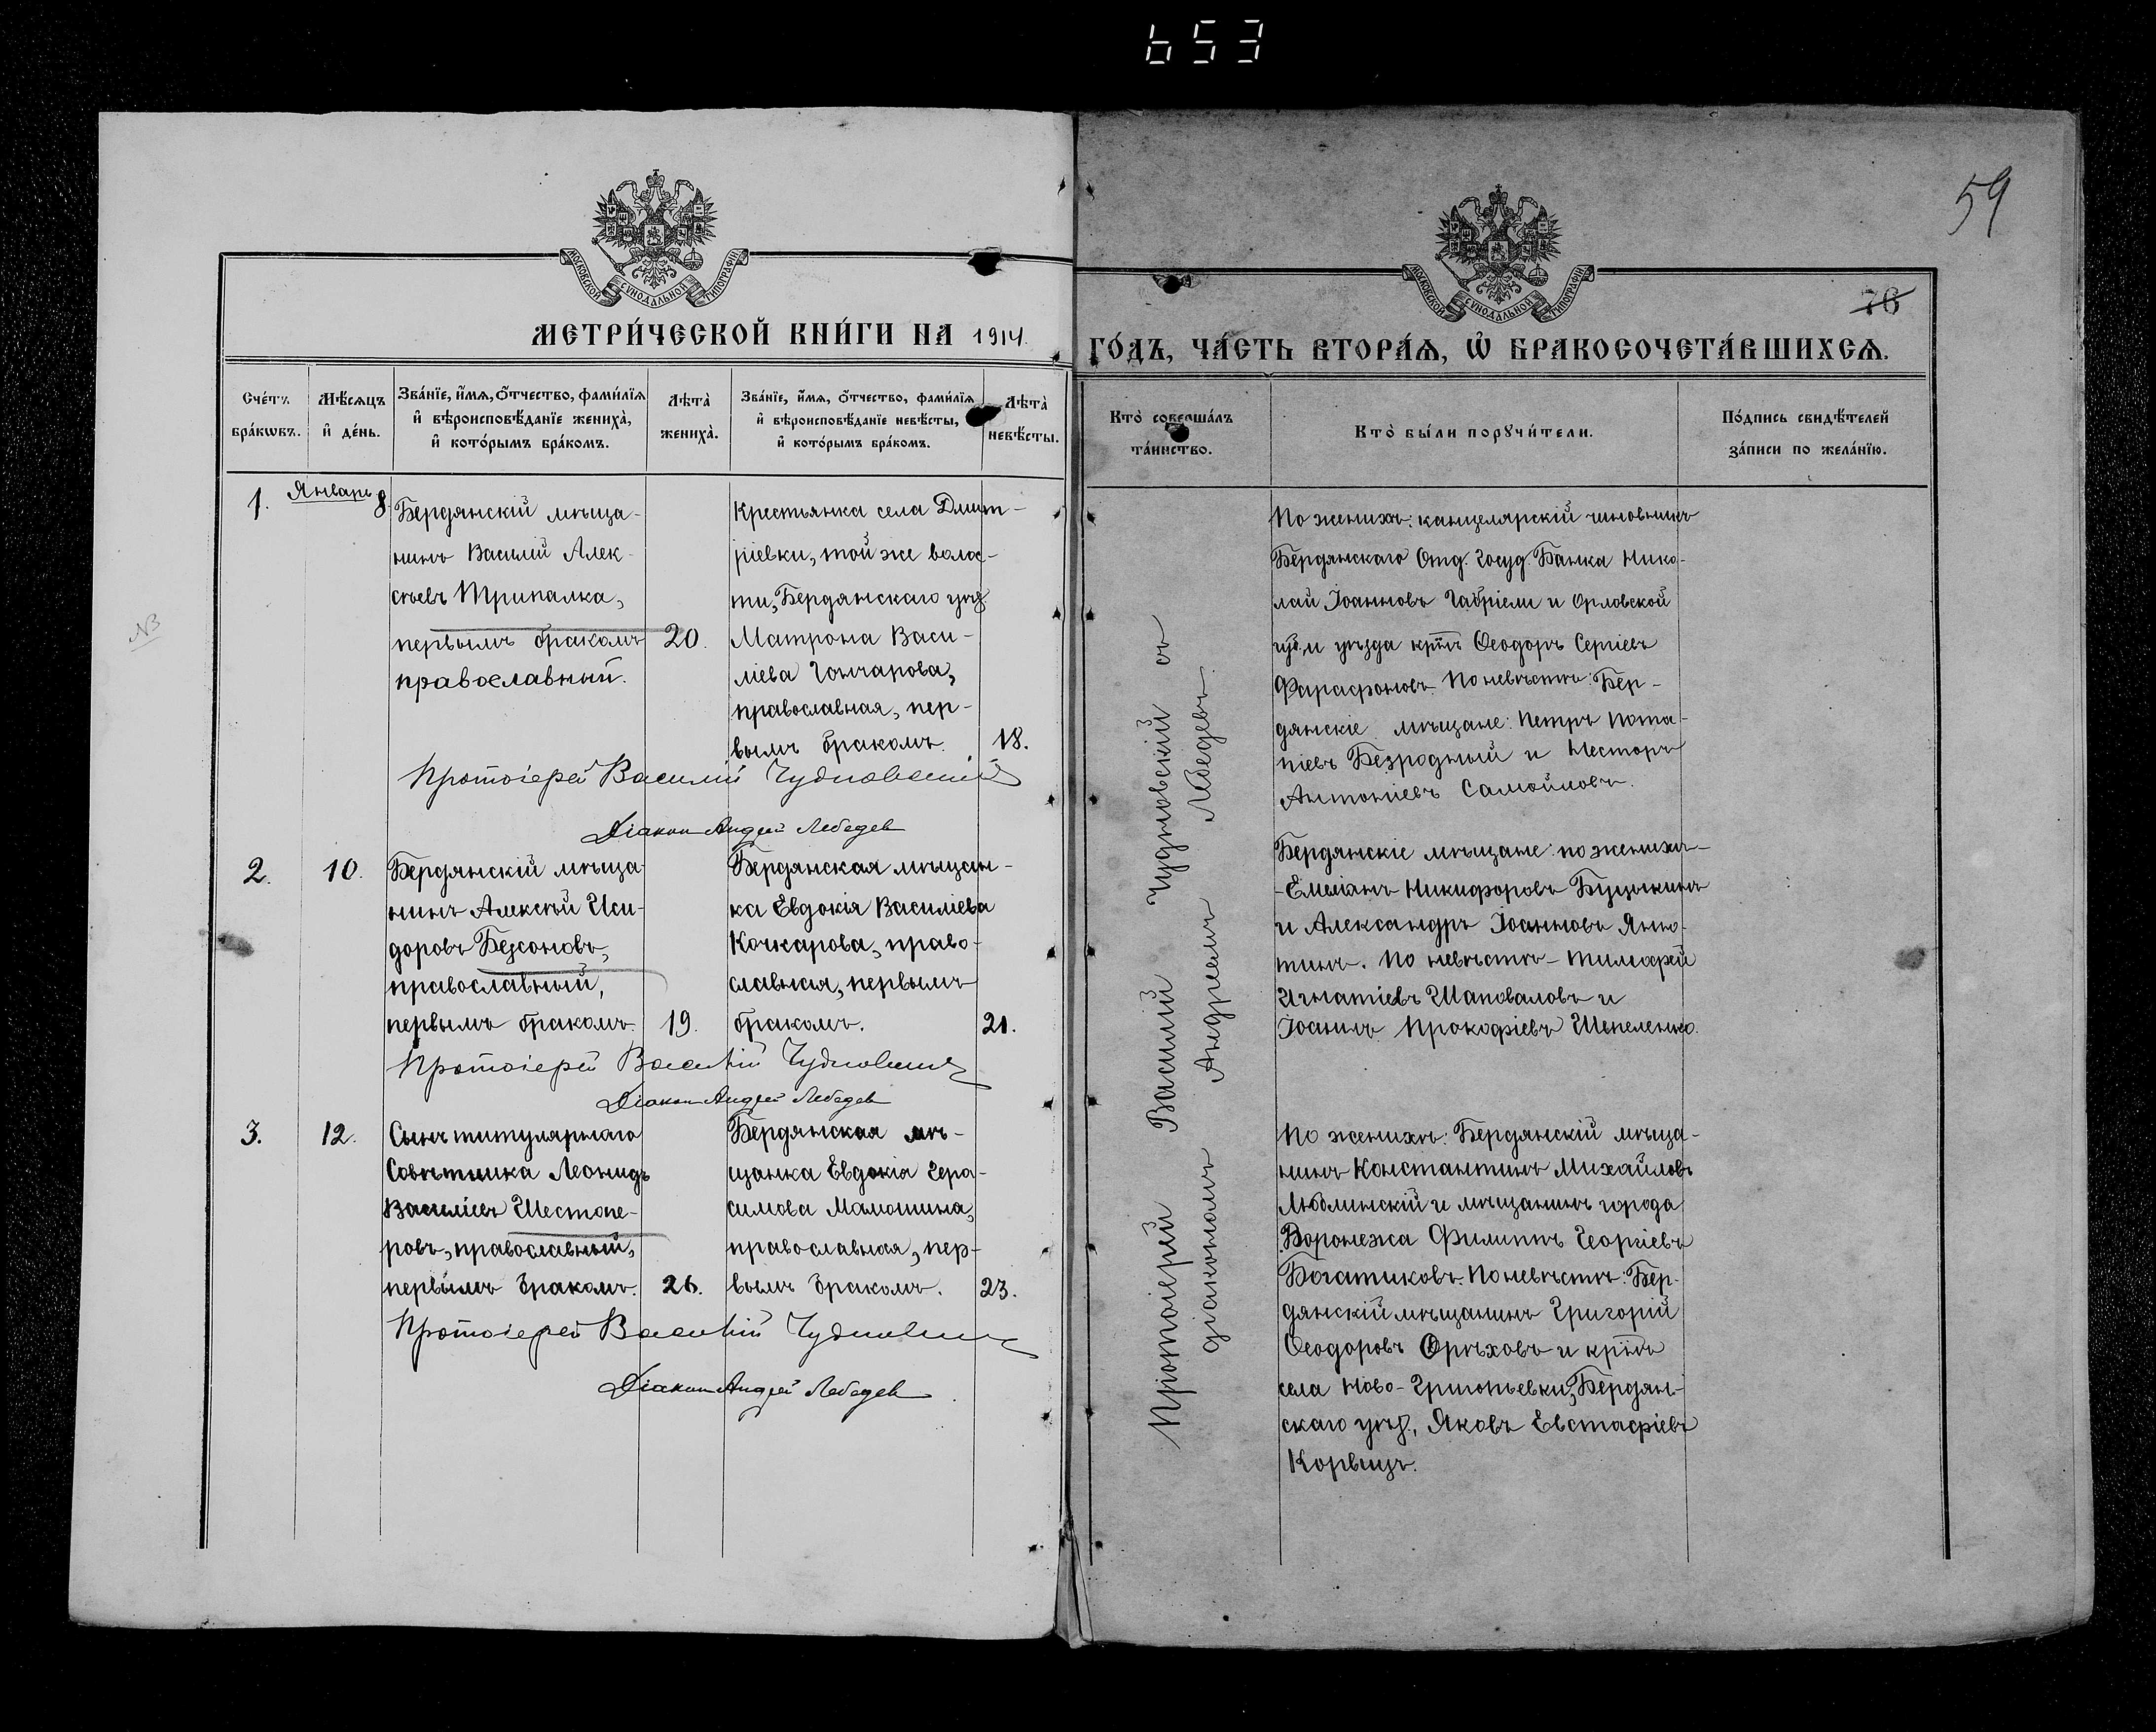 653
59
МОСКОВСКОЙ СѴНОДАЛЬНОЙ ТИПОГРАФІИ
МОСКОВСКОЙ СѴНОДАЛЬНОЙ ТИПОГРАФІИ
76
МЕТРИ́ЧЕСКОЙ КНИ́ГИ НА 1914.
ГО́ДЪ, ЧА́СТЬ ВТОРА́Ѧ, Ѡ҆ БРАКОСОЧЕТА́ВШИХСѦ.
Сче́тъ бра́кѡвъ.
Мѣ́сѧцъ и҆ де́нь.
Зва́нїе, и҆́мѧ, ѻ҆́тчество, фами́лїѧ
и҆ вѣроисповѣ́данїе жениха̀,
и҆ кото́рымъ бра́комъ.
Лѣта̀ жениха̀.
Зва́нїе, и҆́мѧ, ѻ҆́тчество, фами́лїѧ
и҆ вѣроисповѣ́данїе невѣ́сты,
и҆ кото́рымъ бра́комъ.
Лѣта̀ невѣ́сты.
Кто̀ соверша́лъ та́инство.
Кто̀ бы́ли порꙋчи́тели.
По́дпись свидѣ́телей
за́писи по жела́нїю.
№
1.
Январь 8
Бердянскій мѣща-
нинъ Василій Алек-
сѣевъ Трипалка,
первымъ бракомъ
православный.
20.
Крестьянка села Дмит-
ріевки, той же волос-
ти, Бердянскаго уѣз.
Матрона Васи-
ліева Гончарова,
православная, пер-
вымъ бракомъ.
18.
Протоіерей Василій Чудновскій
Діакон Андрей Лебедев
По женихѣ: канцелярскій чиновникъ
Бердянскаго Отд. Госуд. Банка Нико-
лай Іоанновъ Габріели и Орловской
губ. и уѣзда кр-нъ Ѳеодоръ Сергіевъ
Фарафоновъ. По невѣстѣ: Бер-
дянскіе мѣщане: Петръ Пота-
піевъ Безродный и Несторъ
Антоніевъ Самойловъ.
2.
10.
Бердянскій мѣща-
нинъ Алексѣй Иси-
доровъ Безсоновъ,
православный,
первымъ бракомъ.
19.
Бердянская мѣщан-
ка Евдокія Василіева
Кочкарова, право-
славная, первымъ
бракомъ.
21.
Протоіерей Василій Чудновскій
Діакон Андрей Лебедев
Бердянскіе мѣщане: по женихѣ-
-Емеліанъ Никифоровъ
и Александръ Іоанновъ
По невѣстѣ - Тимоѳей
Игнатіевъ Шаповаловъ и
Іоаннъ Прокофіевъ Шепеленко.
3.
12.
Сынъ титулярнаго
Совѣтника Леонидъ
Василіевъ Шестопе-
ровъ, православный,
первымъ бракомъ.
26.
Бердянская мѣ-
щанка Евдокія Гера-
симова Мамошина,
православная, пер-
вымъ бракомъ.
23.
Протоіерей Василій Чудновскій
Діакон Андрей Лебедев
По женихѣ: Бердянскій мѣща-
нинъ Константинъ Михайловъ
Люблинскій и мѣщанинъ города
Воронежа Филиппъ Георгіевъ
Богатиковъ. По невѣстѣ: Бер-
дянскій мѣщанинъ Григорій
Ѳеодоровъ Орѣховъ и кр-нъ
села Ново-Григорьевки, Бердян-
скаго уѣз., Яковъ Евстафіевъ
Протоіерей Василій Чудновскій съ
діакономъ Андреемъ Лебедевъ.